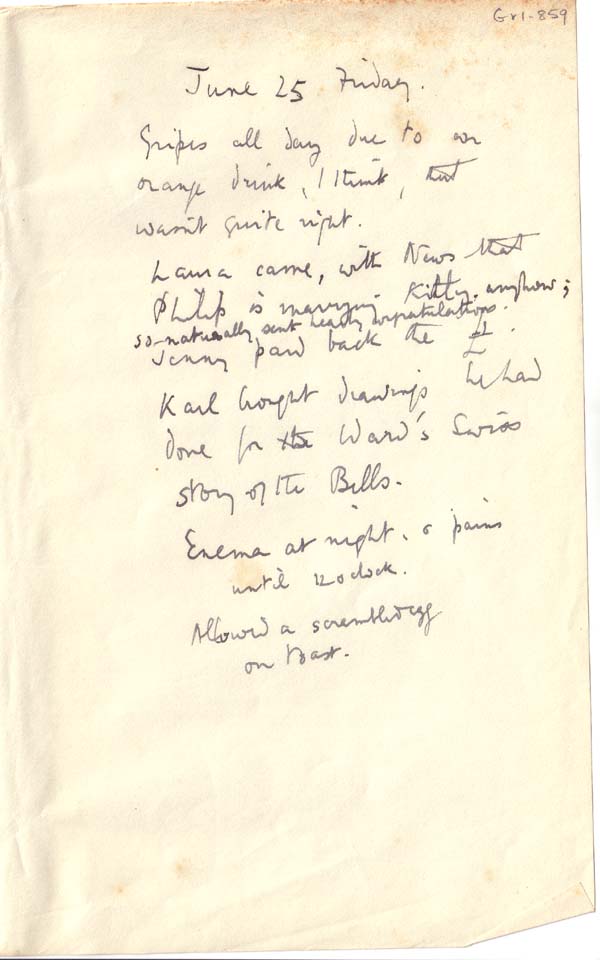 Gr1-859
June 25 Friday.
Gripes all day due to our
orange drink, I think, that
wasn't quite right.
Laura came, with News that
Philip is marrying Kitty, anyhow;
so naturally sent hearty congratulations.
Jenny paid back the £.
Karl brought drawings he had
done for the Ward's Swiss
story of the Bells.
Enema at night. & pains
until 12 oclock.
Allowed a scrambled egg
on toast.